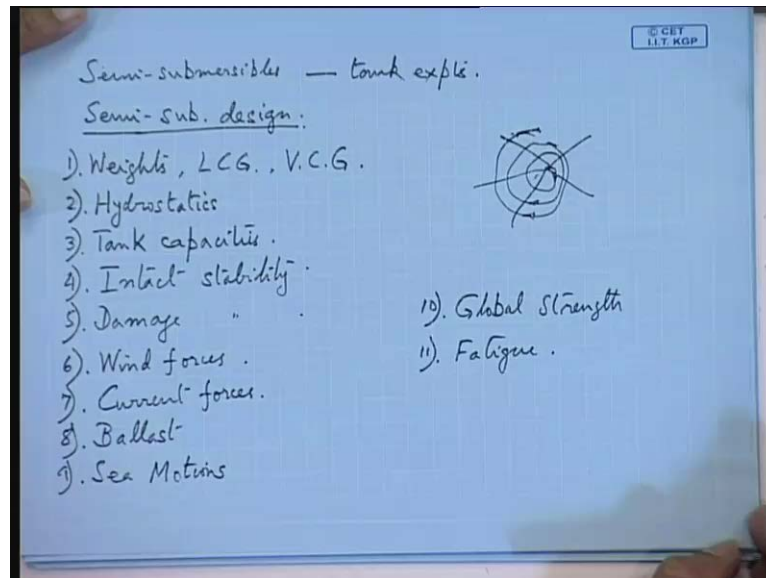 © CET
I.I.T. KGP
Semi-submersibles — tank expts.
Semi-sub. design.
1). Weights, LCG., V.C.G.
2). Hydrostatics
3). Tank capacities.
4). Intact stability.
5). Damage " .
6). Wind forces.
7). Current forces.
8). Ballast
9). Sea Motions
10). Global Strength
11). Fatigue.